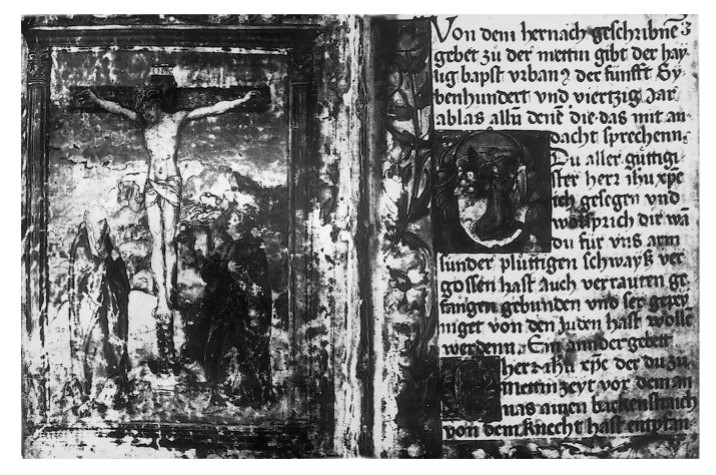 Von dem hernach geschribnē 3
gebet zu der mettin gibt der hay
lig bapst vrban9 der funfft Sy
benhundert vnd viertzig Jar
ablas allñ denē die das mit an-
dacht sprechenn.
Du aller gůttigi
ster herr ihu xpe
ich gesegen vnd
wolsprich dir wā
du fur vns arm
sunder plůttigen schwayß ver
gossen hast auch verraten ge
fangen gebunden vnd ser gepey
niget von den Juden hast wolle
werdenn. Ein annder gebett
herr ihu xpe der du zu
Mettin zeyt vor dem an
nas ainen backenstraich
von dem knecht hast empfan